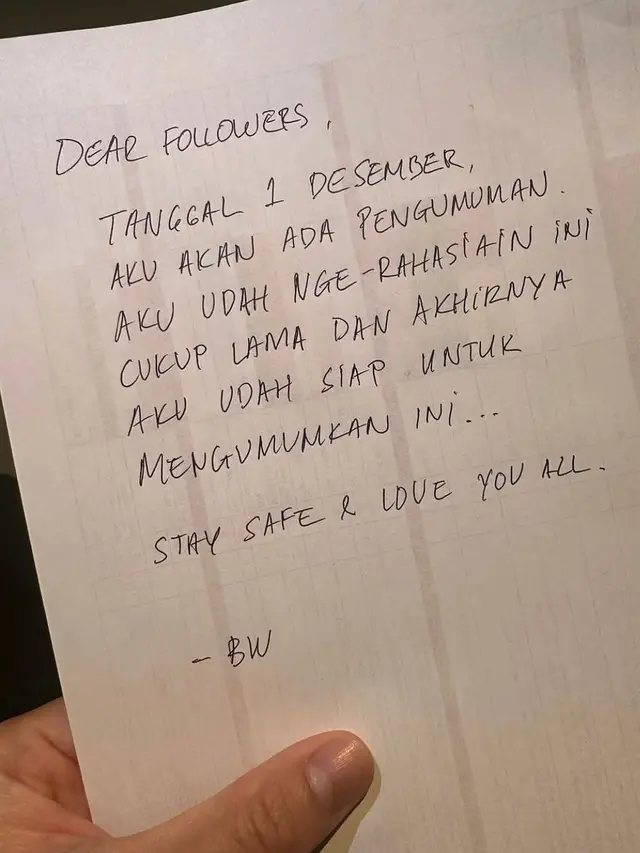 DEAR FOLLOWERS,
TANGGAL 1 DESEMBER,
AKU AKAN ADA PENGUMUMAN.
AKU UDAH NGE-RAHASIAIN INI
CUKUP LAMA DAN AKHIRNYA
AKU UDAH SIAP UNTUK
MENGUMUMKAN INI...
STAY SAFE & LOVE YOU ALL.
- BW